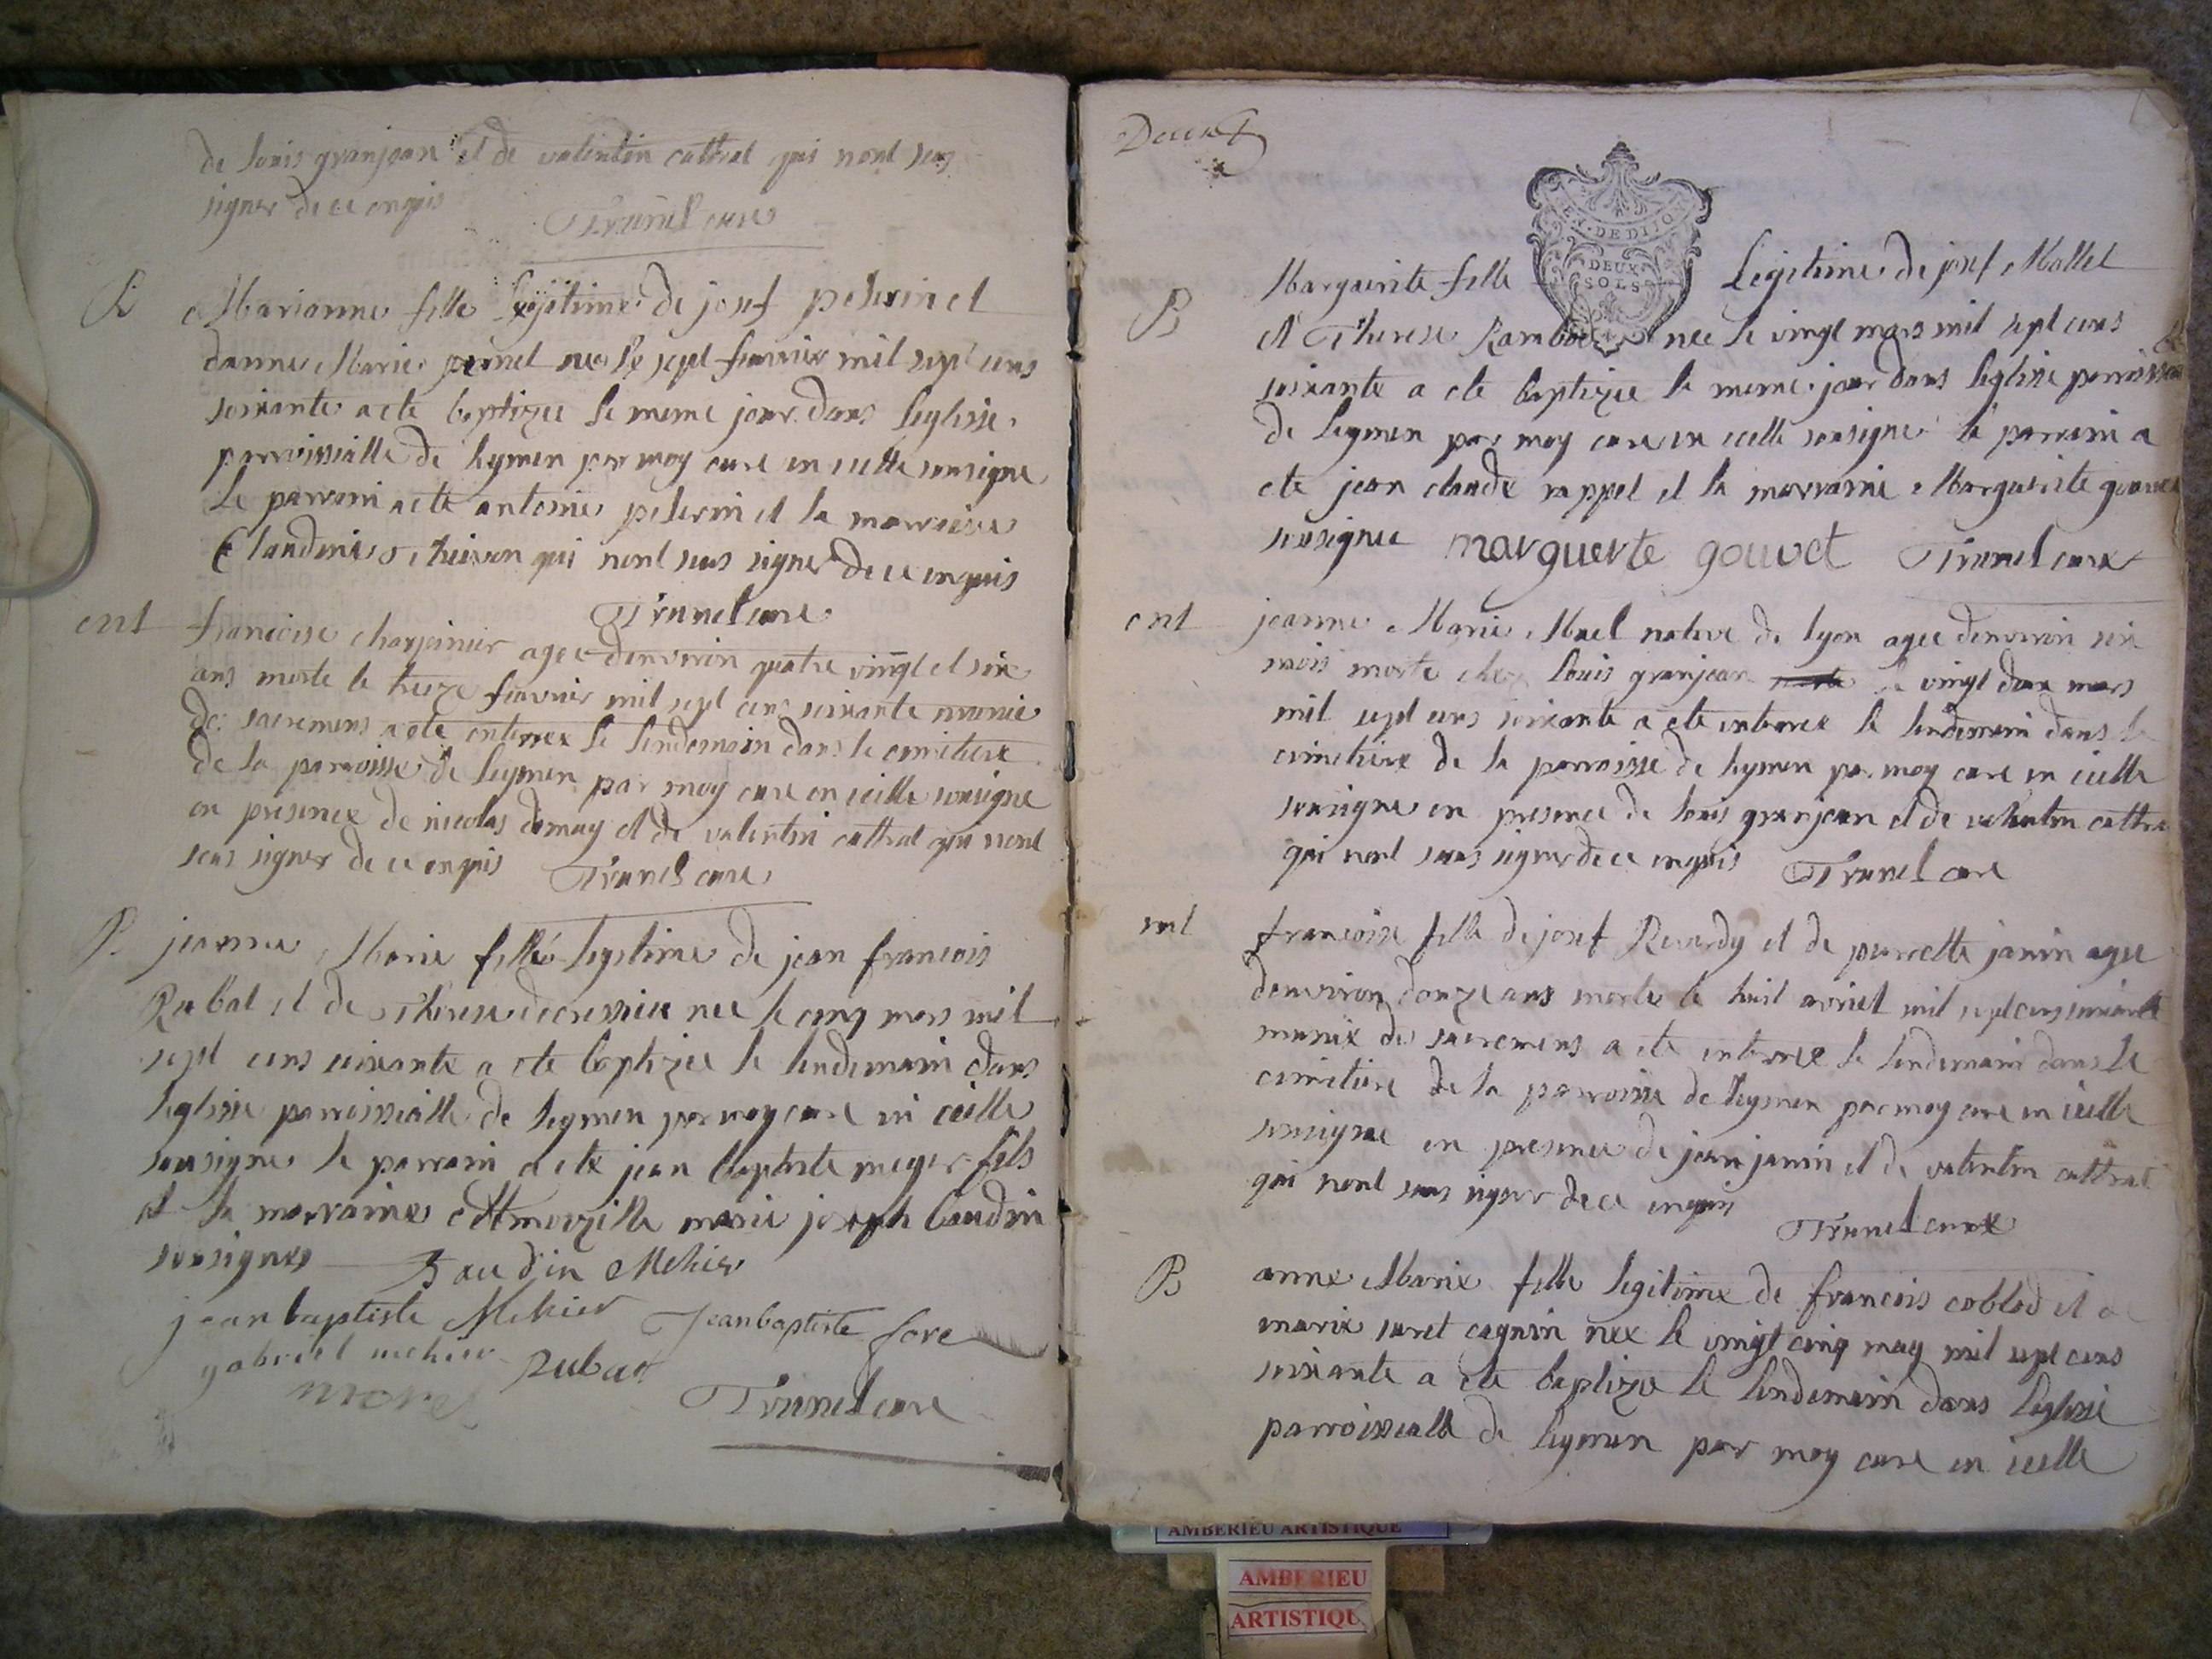 de louis granjean et de valentin cattrat qui nont sus
signer de ce enquis
Trunel cure
B
Marianne fille legitime de josef pelerin et
danne Marie pernet nee le sept fevrier mil sept cens
soixante a ete baptizee le meme jour dans leglisse
parroissialle de leymen par moy cure en icelle sousigne
le parrain a ete antoine pelerin et la marraine
Claudine qui nont sus signer de ce enquis
Trunel cure
ent
francoise charpinier agee denviron quatre vingt et six
ans morte le treize fevrier mil sept cens soixante munie
des sacremens a ete enterree le lendemain dans le cimitiere
de la parroisse de leymen par moy cure en icelle sousigne
en presence de nicolas demay et de valentin cattrat qui nont
sus signer de ce enquis Trunel cure
B
jeanne Marie fille legitime de jean francois
Rubat et de Therese decressieu nee le cinq mars mil
sept cens soixante a ete baptizee le lendemain dans
leglisse parroissialle de leymen par moy cure en icelle
sousigne le parrain a ete jean baptiste meyer fils
et la marraine marie joseph baudin
sousignes Baudin Mehier
jean baptiste Mehier Jean baptiste fore
gabriel mehier Rubat
morel Trunel cure
B
Marguerite fille legitime de josef Mallet
DE DIJON
DEUX SOLS
et Therese nee le vingt mars mil sept cens
soixante a ete baptizee le meme jour dans leglisse parroissialle
de leymen par moy cure en icelle sousigne le parrain a
ete jean claude rappet et la marraine Marguerite
sousignee marguerte gouvet Trunel cure
ent
jeanne Marie native de lyon agee denviron six
mois morte chez louis granjean le vingt deux mars
mil sept cens soixante a ete enterree le lendemain dans le
cimitiere de la parroisse de leymen par moy cure en icelle
sousigne en presence de louis granjean et de valentin cattrat
qui nont sus signer de ce enquis Trunel cure
ent
francoise fille de josef Reverdy et de pierrette janin agee
denviron douze ans morte le huit avriel mil sept cens soixante
munie des sacremens a ete enterree le lendemain dans le
cimitiere de la parroisse de leymen par moy cure en icelle
sousigne en presence de jean janin et de valentin cattrat
qui nont sus signer de ce enquis
Trunel cure
B
anne Marie fille legitime de francois coblod et de
marie nee le vingt cinq may mil sept cens
soixante a ete baptizee le lendemain dans leglisse
parroissialle de leymen par moy cure en icelle
AMBERIEU ARTISTIQUE
AMBERIEU
ARTISTIQU